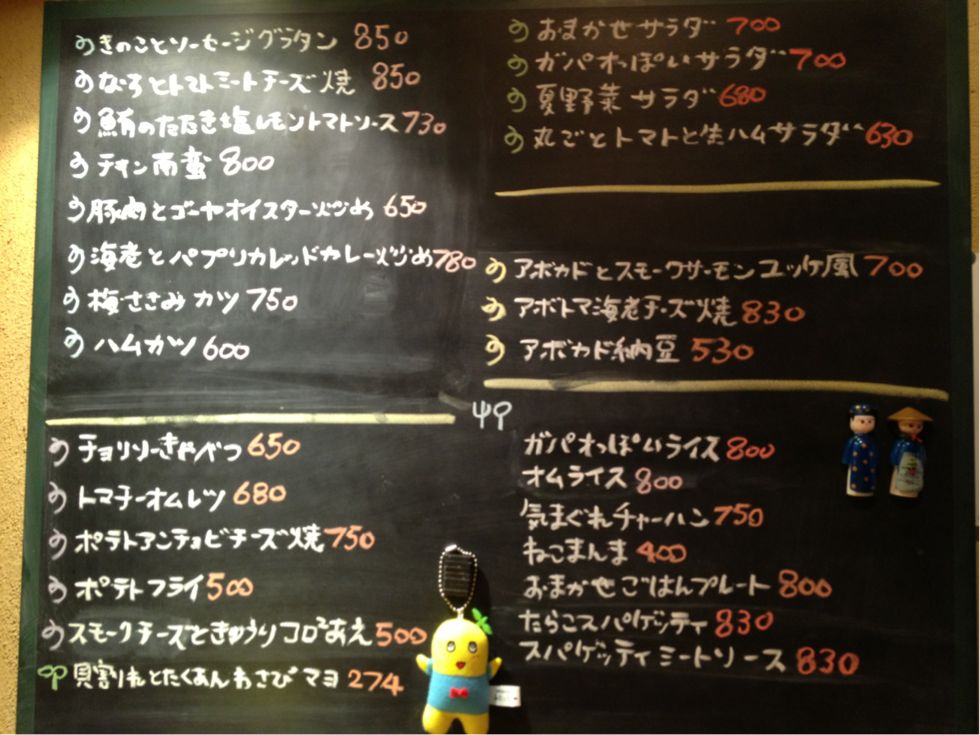 きのことソーセージグラタン 850
なすとトマトミートチーズ焼 850
鮪のたたき塩レモントマトソース 730
チキン南蛮 800
豚肉とゴーヤオイスター炒め 650
海老とパプリカレッドカレー炒め 780
梅ささみカツ 750
ハムカツ 600
チョリソーきゃべつ 650
トマチーオムレツ 680
ポテトアンチョビチーズ焼 750
ポテトフライ 500
スモークチーズときゅうりコロコロあえ 500
貝割れとたくあんわさびマヨ 274
おまかせサラダ 700
ガパオっぽいサラダ 700
夏野菜サラダ 680
丸ごとトマトと生ハムサラダ 630
アボカドとスモークサーモンユッケ風 700
アボトマ海老チーズ焼 830
アボカド納豆 530
ガパオっぽいライス 800
オムライス 800
気まぐれチャーハン 750
ねこまんま 400
おまかせごはんプレート 800
たらこスパゲッティ 830
スパゲッティミートソース 830